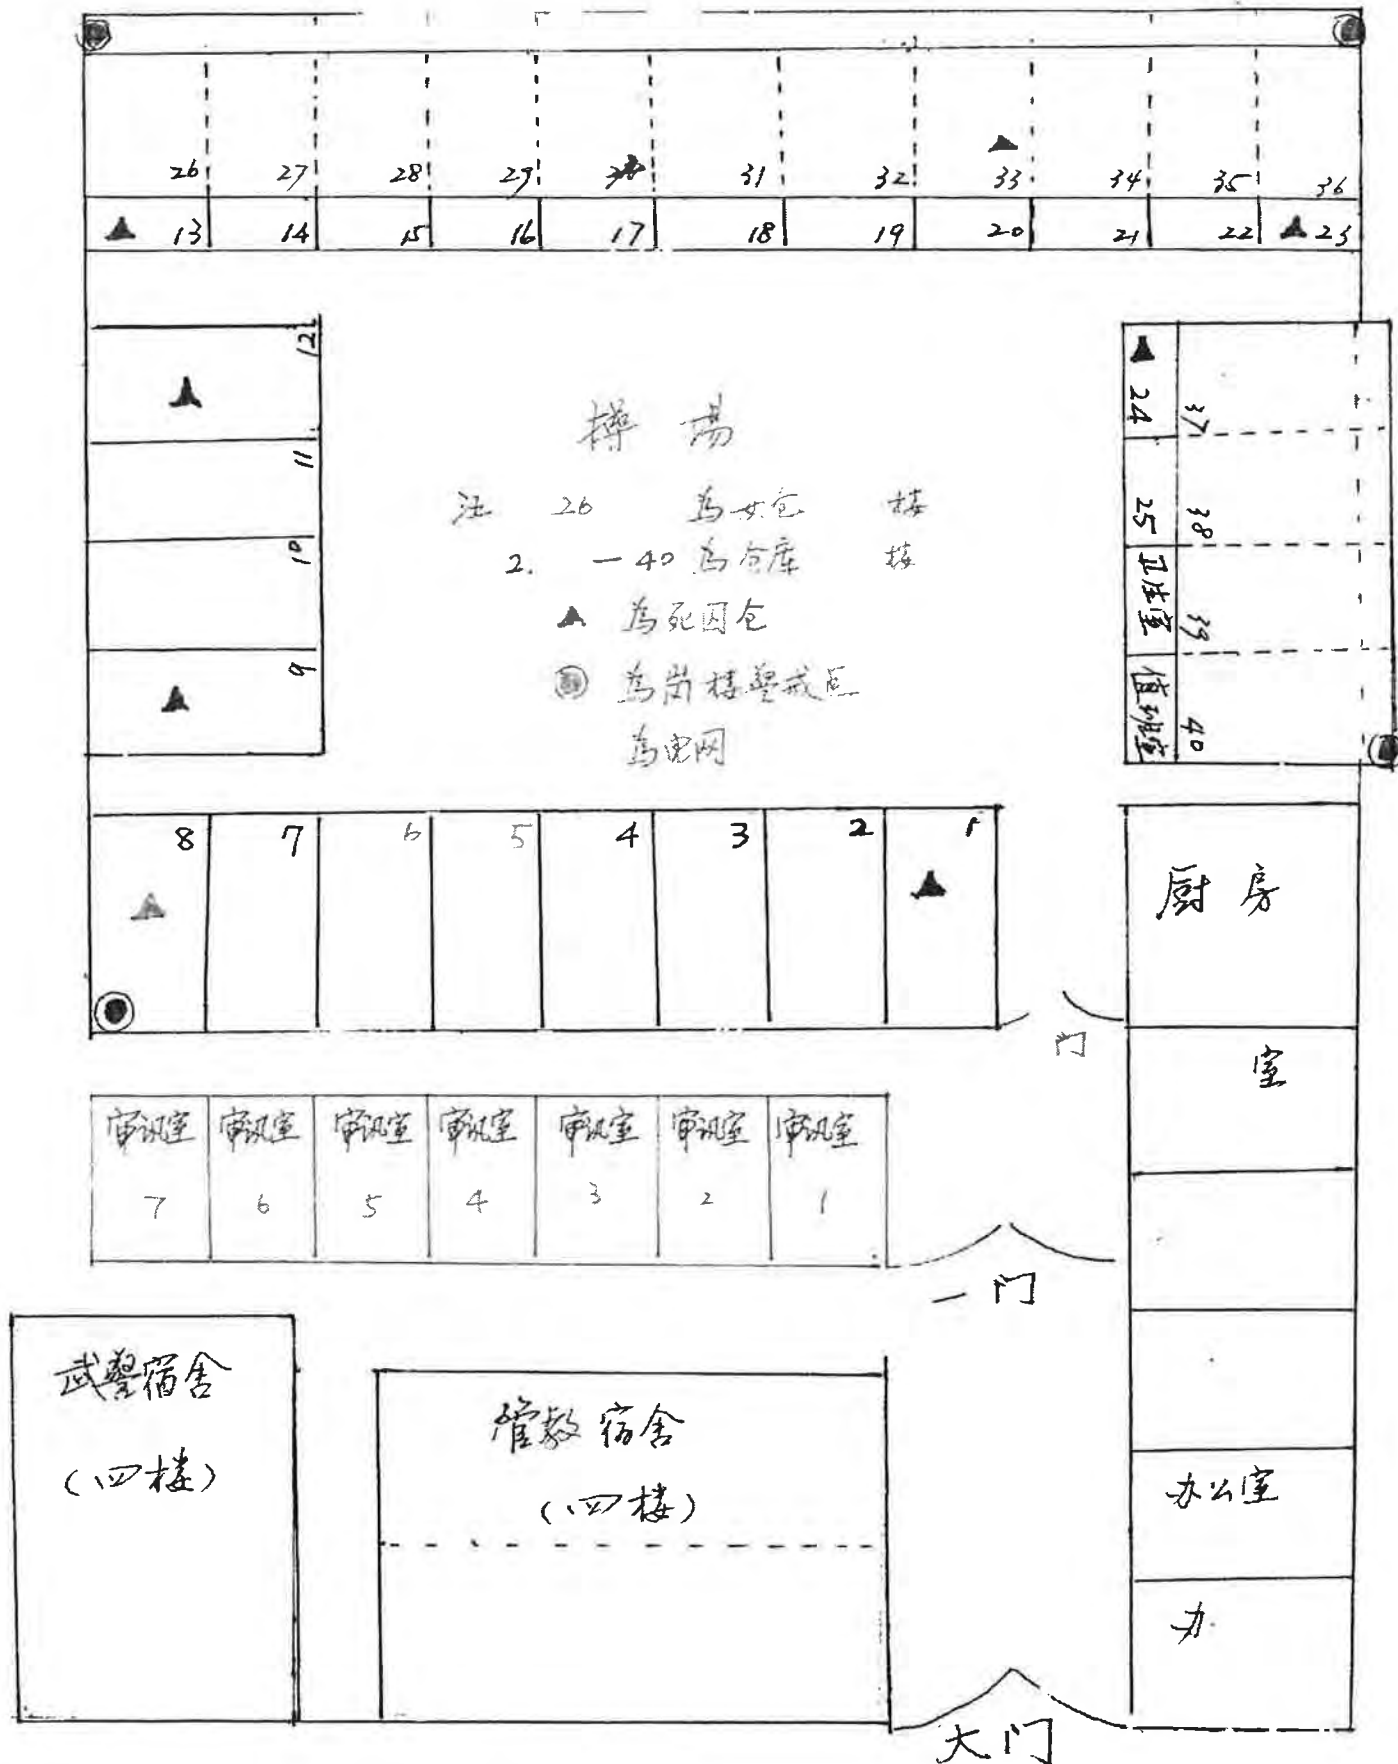 26 27 28 29 30 31 32 33 34 35 36
13 14 15 16 17 18 19 20 21 22 23
12
11
10
9
操场
注 26 为女仓 楼
2. 一40 为仓库 楼
▲ 为死囚仓
为岗楼警戒点
为电网
24 37
25 38
卫生室 39
值班室 40
8 7 6 5 4 3 2 1
厨房
门
室
审讯室 审讯室 审讯室 审讯室 审讯室 审讯室 审讯室
7 6 5 4 3 2 1
一门
武警宿舍
(四楼)
管教宿舍
(四楼)
办公室
办
大门